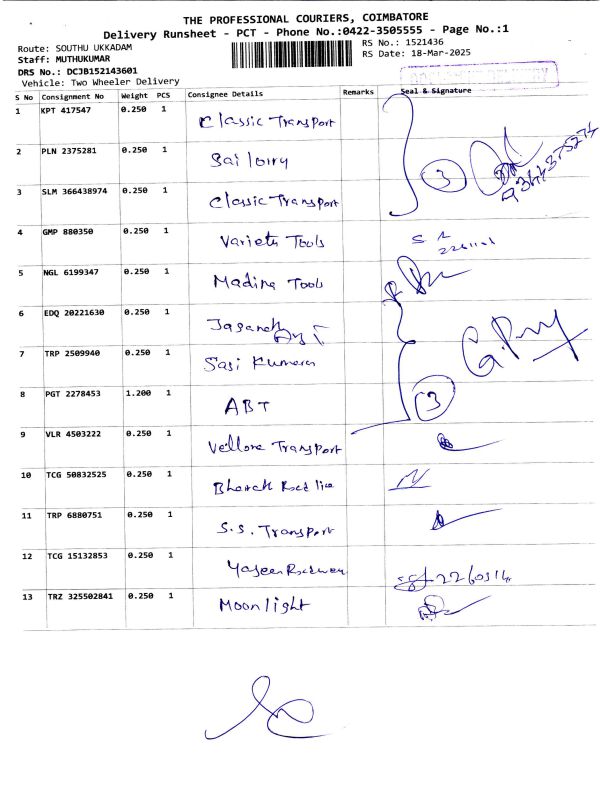 THE PROFESSIONAL COURIERS, COIMBATORE
Delivery Runsheet - PCT - Phone No.:0422-3505555 - Page No.:1
Route: SOUTHU UKKADAM RS No.: 1521436
Staff: MUTHUKUMAR RS Date: 18-Mar-2025
DRS No.: DCJB152143601
Vehicle: Two Wheeler Delivery
S No Consignment No Weight PCS Consignee Details Remarks Seal & Signature
1 KPT 417547 0.250 1 Classic Transport
2 PLN 2375281 0.250 1 Sai lorry 3
3 SLM 366438974 0.250 1 Classic Transport
4 GMP 880350 0.250 1 Variety Tools
5 NGL 6199347 0.250 1 Madina Tools
6 EDQ 20221630 0.250 1
7 TRP 2509940 0.250 1 Sasi Kumaran
8 PGT 2278453 1.200 1 ABT 3
9 VLR 4503222 0.250 1 Vellore Transport
10 TCG 50832525 0.250 1 Bharath
11 TRP 6880751 0.250 1 S.S. Transport
12 TCG 15132853 0.250 1
13 TRZ 325502841 0.250 1 Moonlight